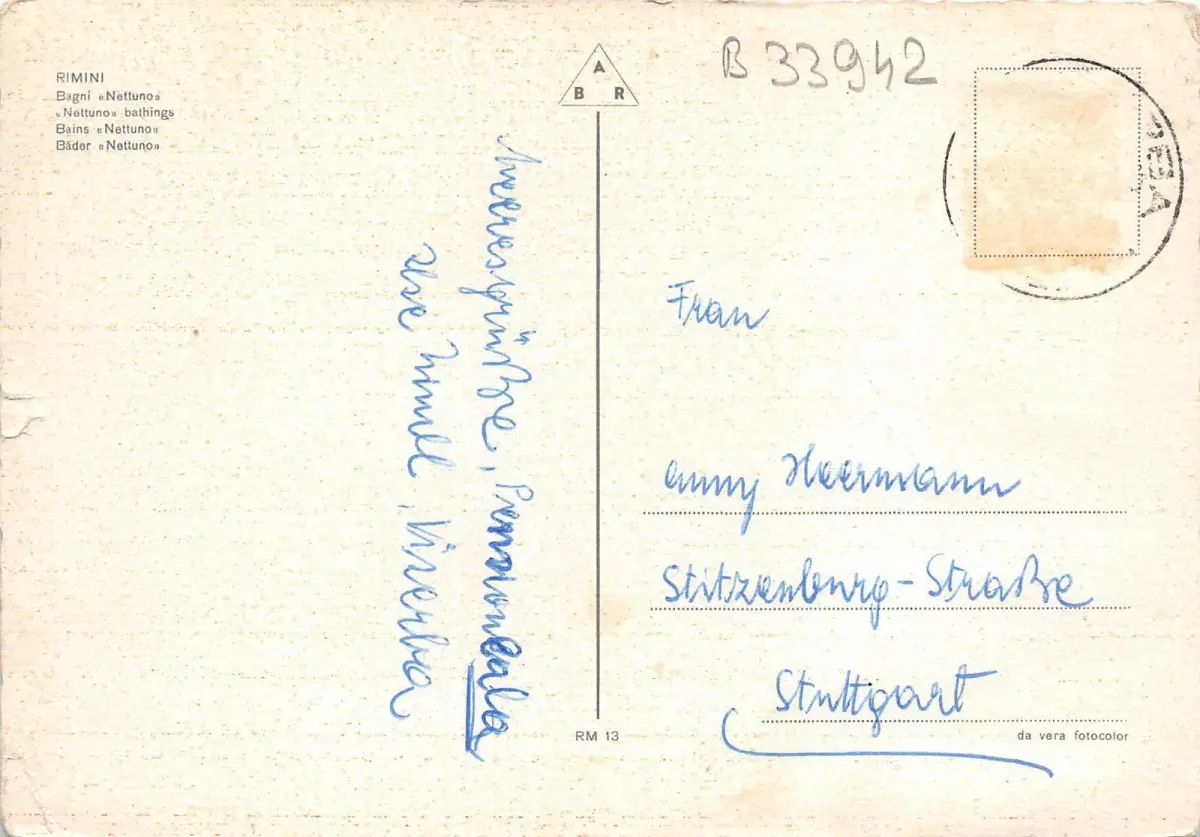 RIMINI
Bagni «Nettuno»
«Nettuno» bathings
Bains «Nettuno»
Bäder «Nettuno»
A
B R
B 33942
Meeresgrüße,
Viserba
Frau
Anny Heermann
Stitzenburg-Straße
Stuttgart
RM 13
da vera fotocolor